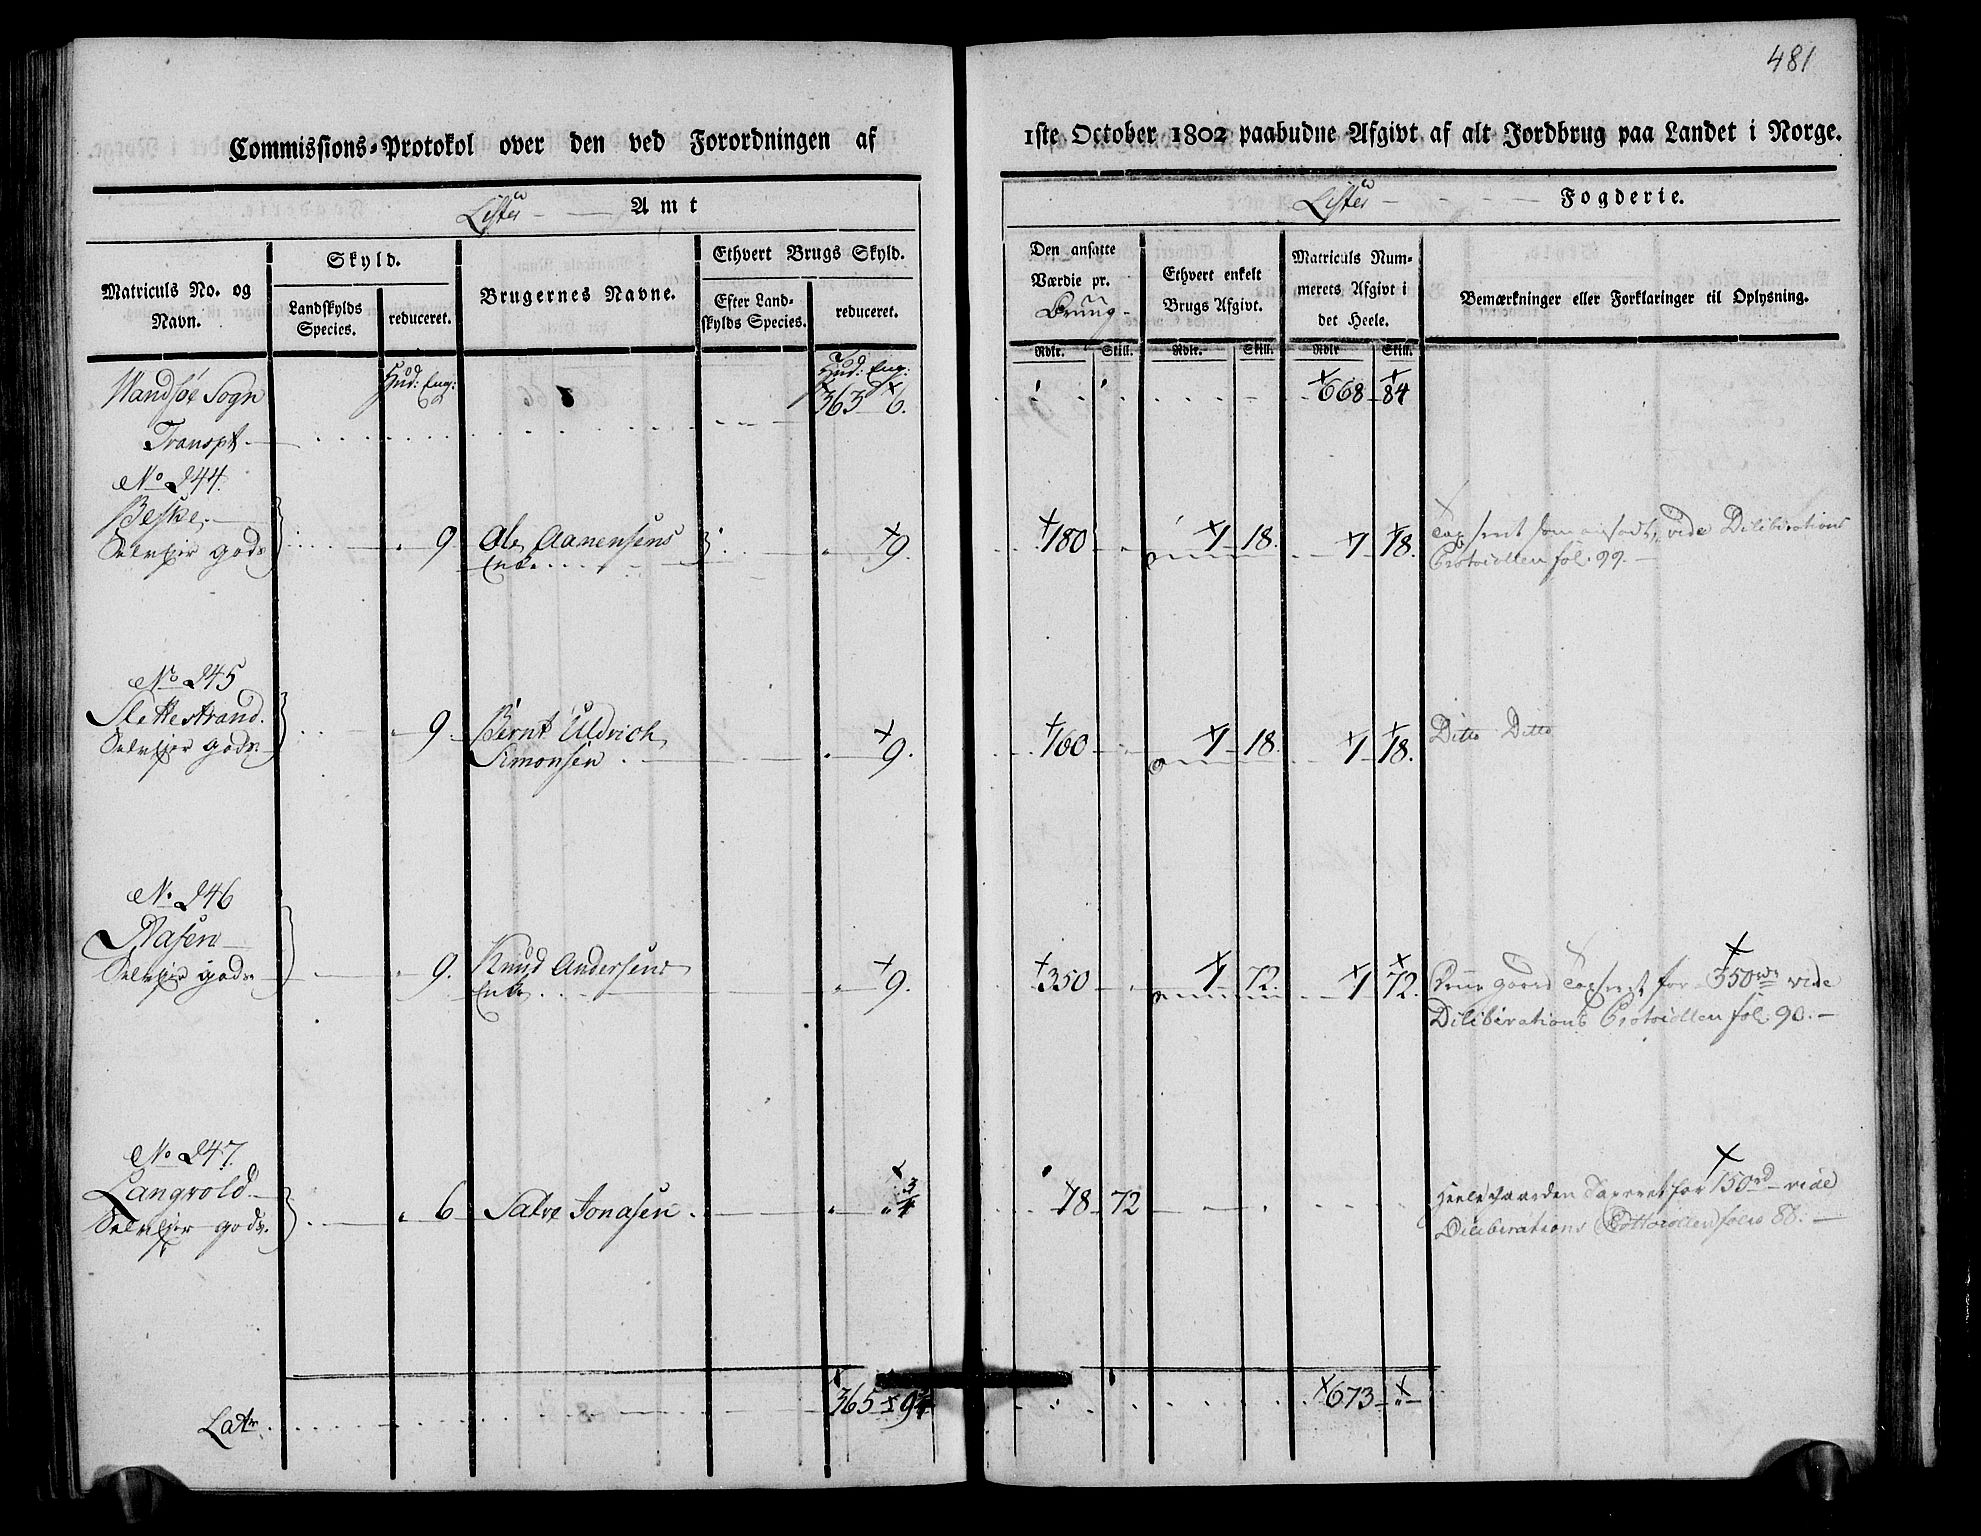 481
Commissions-Protokol over den ved Forordningen af
1ste October 1802 paabudne Afgivt af alt Jordbrug paa Landet i Norge.
Lister Amt
Lister Fogderie.
Matriculs No. og Navn.
Skyld.
Landskylds Species.
reduceret.
Brugernes Navne.
Ethvert Brugs Skyld.
Efter Landskylds Species.
reduceret.
Den ansatte Værdie pr. Brug
Ethvert enkelt Brugs Afgivt.
Matriculs Nummerets Afgivt i det Heele.
Bemærkninger eller Forklaringer til Oplysning.
Rdlr. Skill. Rdlr. Skill. Rdlr Skill.
Hud: Eng: Hud: Eng:
Sogn 363 6. 668 84
Transpt
No 244.
Beske.
Selvejer gods 9 Ole Aanensens 9. 180 1 18. 1 18. Taxseret som ansadt, vide Deliberations
Enke Protocollen fol. 99.
No 245
Slettestrand.
Selvejer gods 9. Bernt Uldrich 9. 160 1 18. 1 18. Ditto Ditto
Simonsen
No. 246
Selvejer gods 9. Knud Andersens 9. 350 1 72. 1 72. gaard Taxseret for 350rd vide
Enke Deliberations Protocollen fol. 90.
No 247.
Langvold
Selvejer gods. 6 Salve Jonasen 3/4 18 72 Heele Gaarden Taxeret for 150rd vide
Deliberations Protocollen folio 88.
Latr. 365 9 3/4 673